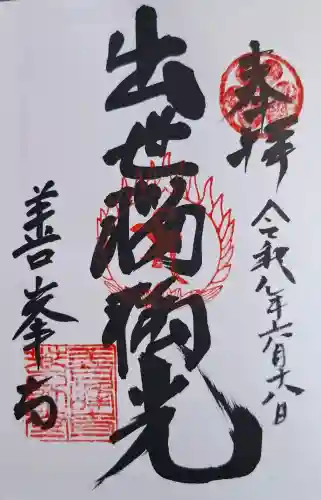 奉拝
令和年六月十八日
出世瑠璃光
善峯寺